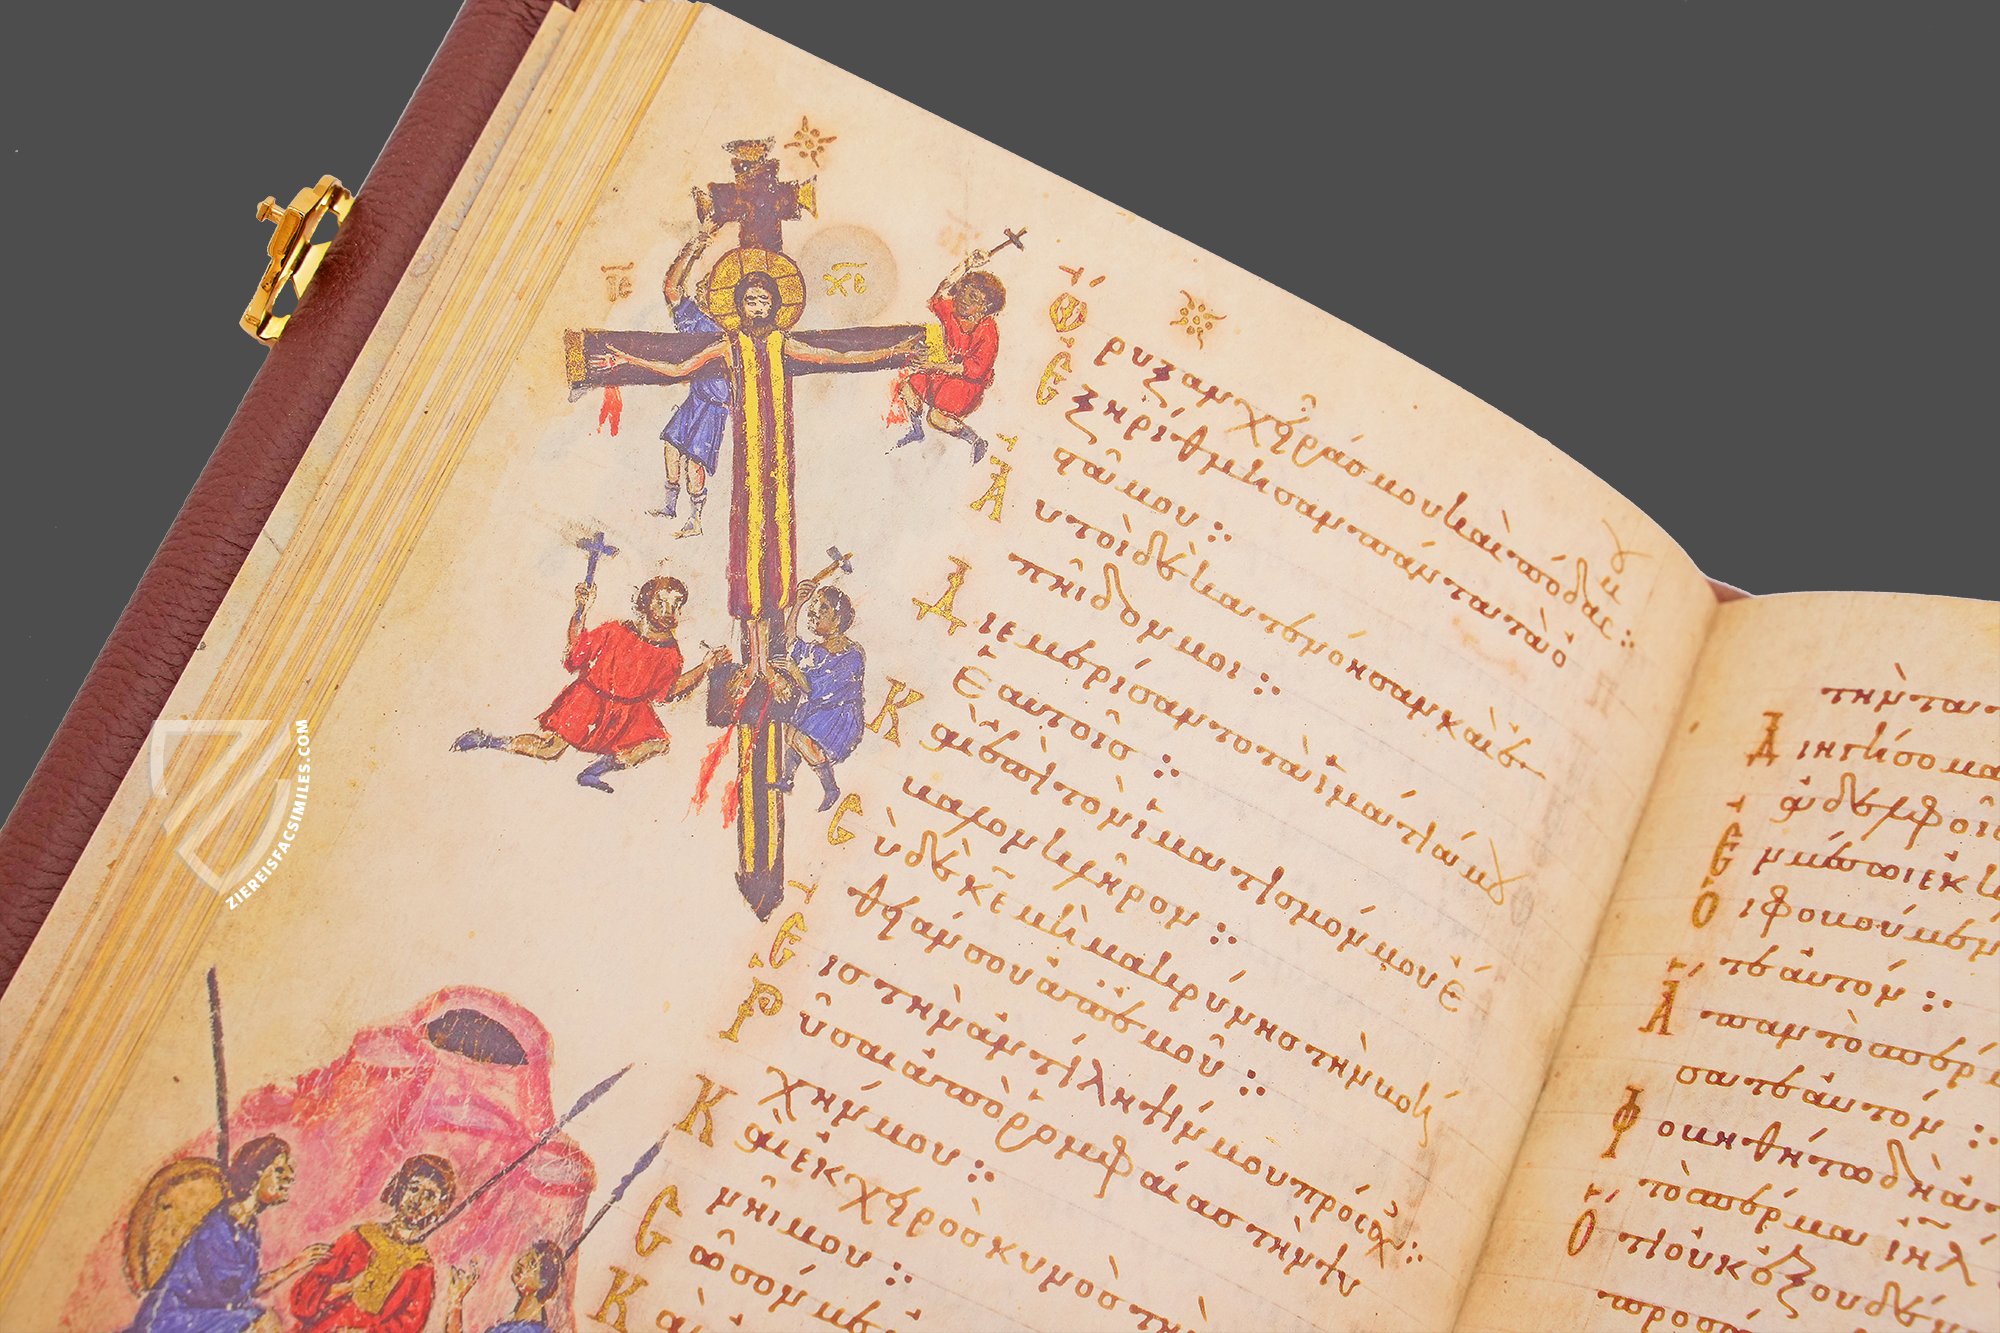 ις χς
Ὤρυξαν χεῖράς μου καὶ πόδας :
Ἐξηρίθμησαν πάντα τὰ ὀ
στᾶ μου :
Αὐτοὶ δὲ κατενόησαν καὶ ἐ
πῆδόν μοι :
Διεμερίσαντο τὰ ἱμάτιά μου
ἑαυτοῖς :
Καὶ ἐπὶ τὸν ἱματισμόν μου ἔ
βαλον κλῆρον :
Σὺ δὲ κε μὴ μακρύνης τὴν βοή
θειάν σου ἀπ' ἐμοῦ :
Εἰς τὴν ἀντίληψίν μου πρόσχες :
Ῥῦσαι ἀπὸ ῥομφαίας τὴν ψυ
χήν μου :
Καὶ ἐκ χειρὸς κυνὸς τὴν
μου :
Σῶσόν με
Καὶ
τὴν
Διηγήσομα
ἀδελφοῖ
Ἐν μέσω ἐκκ
Οἱ φοβούμεν
τε αὐτόν :
Ἅπαν τὸ σπέρ
σατε αὐτόν :
Φοβηθήτω δὴ
τὸ σπέρμα ιηλ
Ὅτι οὐκ ἐξουδέ
ZIEREISFACSIMILES.COM